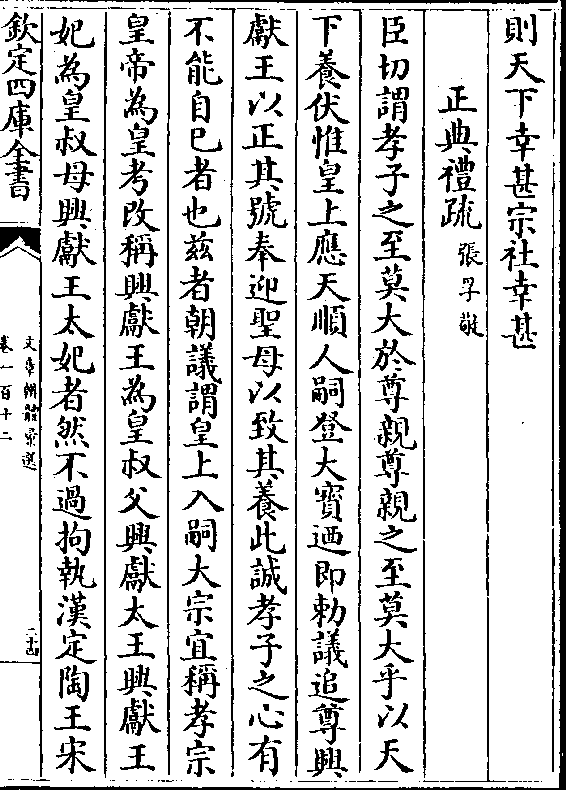 則天下幸甚宗社幸甚
正典禮疏 張孚敬
臣切謂孝子之至莫大於尊親尊親之至莫大乎以天
下養伏惟皇上應天順人嗣登大寳迺即勅議追尊興
獻王以正其號奉迎聖母以致其養此誠孝子之心有
不能自已者也兹者朝議謂皇上入嗣大宗宜稱孝宗
皇帝為皇考改稱興獻王為皇叔父興獻太王興獻王
妃為皇叔母興獻王太妃者然不過拘執漢定陶王宋
欽定四庫全書
文章辨體彙選
卷一百十二
二十四